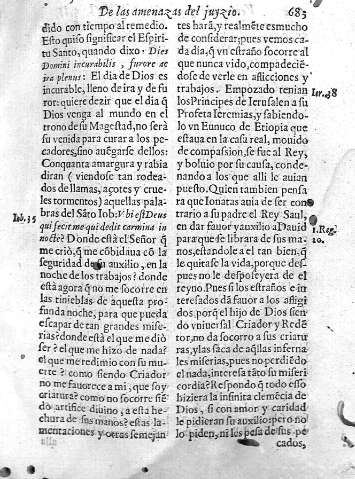 De las amenazas del juyzio. 683
dido con tiempo al remedio.
Esto quiso significar el Espiri-
tu Santo, quando dixo: Dies
Domini incurabilis, furore ac
ira plenus: El dia de Dios es
incurable, lleno de ira y de fu-
ror: quiere dezir que el dia q̃
Dios venga al mundo en el
trono de su Magestad, no serà
su venida para curar a los pe-
cadores, sino auergüẽcelos:
Conquanta amargura y rabia
diran (viendose tan rodea-
dos de llamas, açotes y crue-
les tormentos) aquellas pala-
bras del Sãto Iob: Vbi est Deus
qui fecit me qui dedit carmina in
nocte? Donde està el Señor q̃
me criò, q̃ me cõbidaua cõ la
seguridad de su auxilio, en la
noche de los trabajos? donde
està agora q̃ no me socorre en
las tinieblas de aquesta pro-
funda noche, para que pueda
escapar de tan grandes mise-
rias? donde està el que me dio
ser? el que me hizo de nada?
el que me redimio con su mu-
erte? como siendo Criador
no me fauorece a mi, que soy
criatura? como no socorre siẽ
dò artifice diuino, a esta he-
chura de sus manos? estas la-
mentaciones y otras semejan
Iob, 35
tes harà, y realmẽte es mucho
de considerar; pues vemos ca-
da dia, q̃ vn estraño socorre al
que nunca vido, compadecié-
dose de verle en aflicciones y
trabajos. Empozado tenian
los Principes de Ierusalen a su
Profeta Ieremias, y sabiendo-
lo vn Eunuco de Etiopia que
estaua en la casa real, mouido
de compasion, se fue al Rey,
y boluio por su causa, conde-
nando a los que alli le auian
puesto. Quien tambien pensa
ra que Ionatas auia de ser con
trario a su padre el Rey Saul,
en dar fauor y auxilio a Dauid
para que se librara de sus ma-
nos, estandole a el tan bien, q̃
le quitase la vida, porque des-
pues no le desposeyera de el
reyno. Pues si los estraños e in
teresados dã fauor a los afligi
dos, porq̃ el hijo de Dios sien
do vniuersal Criador y Redẽ-
tor, no da socorro a sus criatu
ras, y las saca de aq̃llas infernales
miserias, pues no perdiẽdo
el nada, interesa tãto su miseri
cordia? Respondo q̃ todo esso
hiziera la infinita clemẽcia de
Dios, si con amor y caridad
le pidieran su auxilio: pero no
lo piden, ni les pesa de sus pe
cados,
Ier. 38
1. Reg.
20.